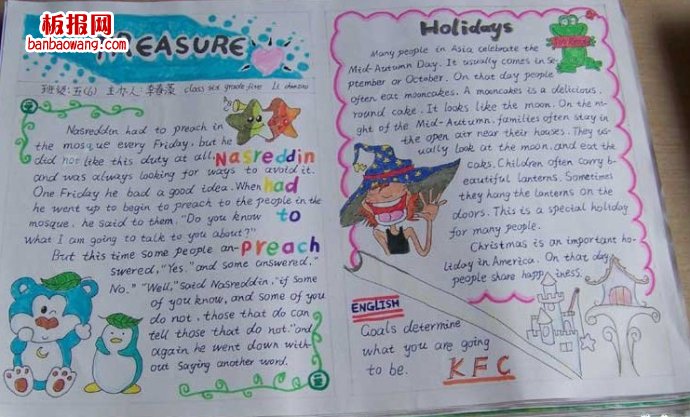 板报网
banbaowang.com
TREASURE
班级:五(6) 主办人:李春 class six grade five Li
Nasreddin had to preach in
the mosque every Friday, but he
did not like this duty at all, Nasreddin
and was always looking for ways to avoid it.
One Friday he had a good idea. When had
he went up to begin to preach to the people in the
mosque, he said to them, "Do you know to
what I am going to talk to you about?"
But this time some people an- preach
swered, "Yes," and some answered, "
No." "Well," said Nasreddin, "if some
of you know, and some of you
do not, those that do can
tell those that do not." and
again he went down with-
out saying another word.
Holidays
Many people in Asia celebrate the
Mid-Autumn Day. It usually comes in Se-
ptember or October. On that day people
often eat mooncakes. A mooncakes is a delicious,
round cake. It looks like the moon. On the ni-
ght of the Mid-Autumn, families often stay in
the open air near their houses. They us-
ually look at the moon, and eat the
caks. Children often carry b-
eautiful lanterns. Sometimes
they hang the lanterns on the
doors. This is a special holiday
for many people.
Christmas is an important ho-
liday in America. On that day
people share happiness.
ENGLISH
Goals determine
what you are going
to be.
KFC